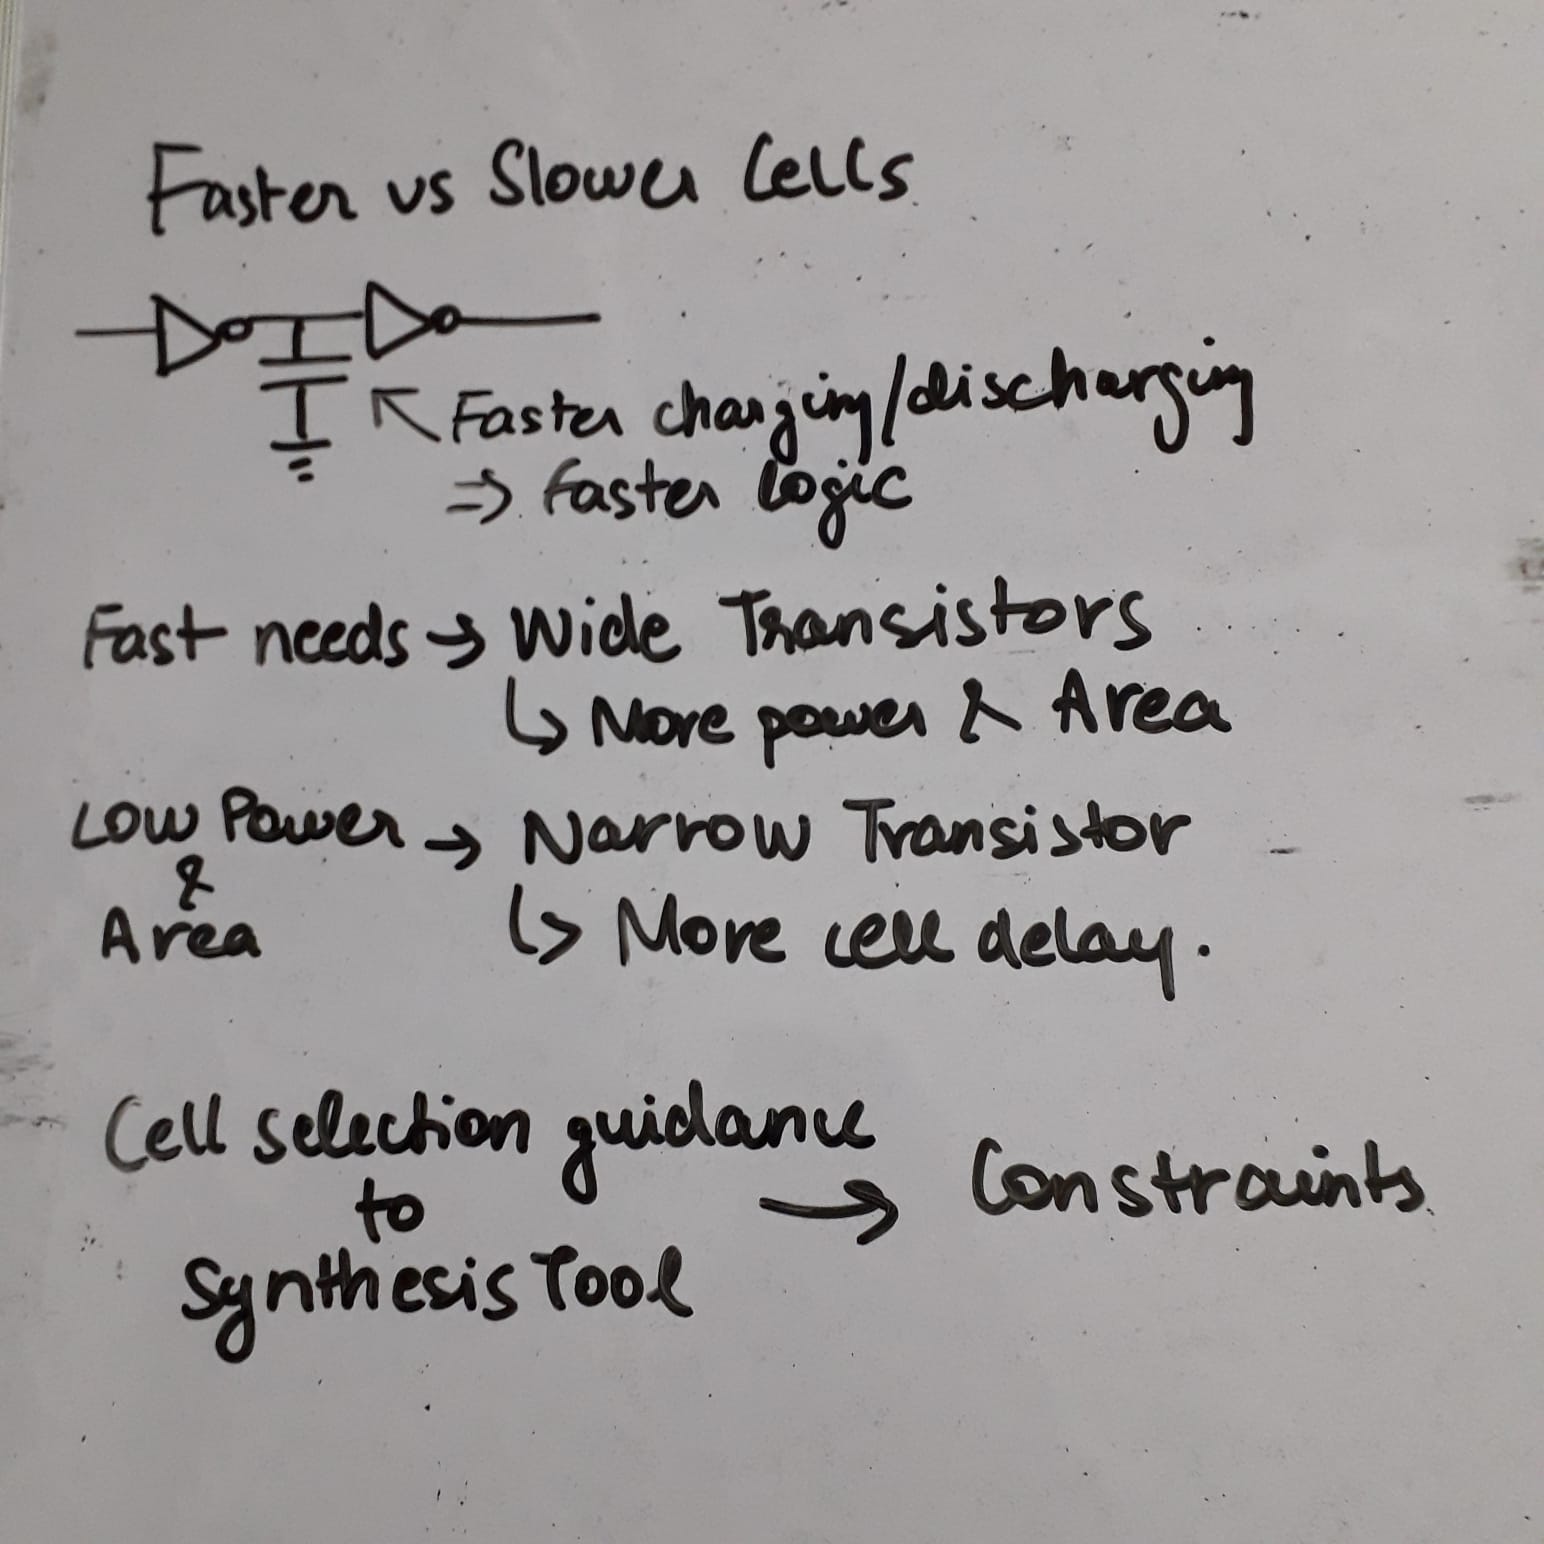 Faster vs Slower Cells
Faster charging/discharging
⇒ faster logic
Fast needs → Wide Transistors
↳ More power & Area
Low Power → Narrow Transistor
&
Area ↳ More cell delay.
Cell selection guidance
to → Constraints
Synthesis Tool